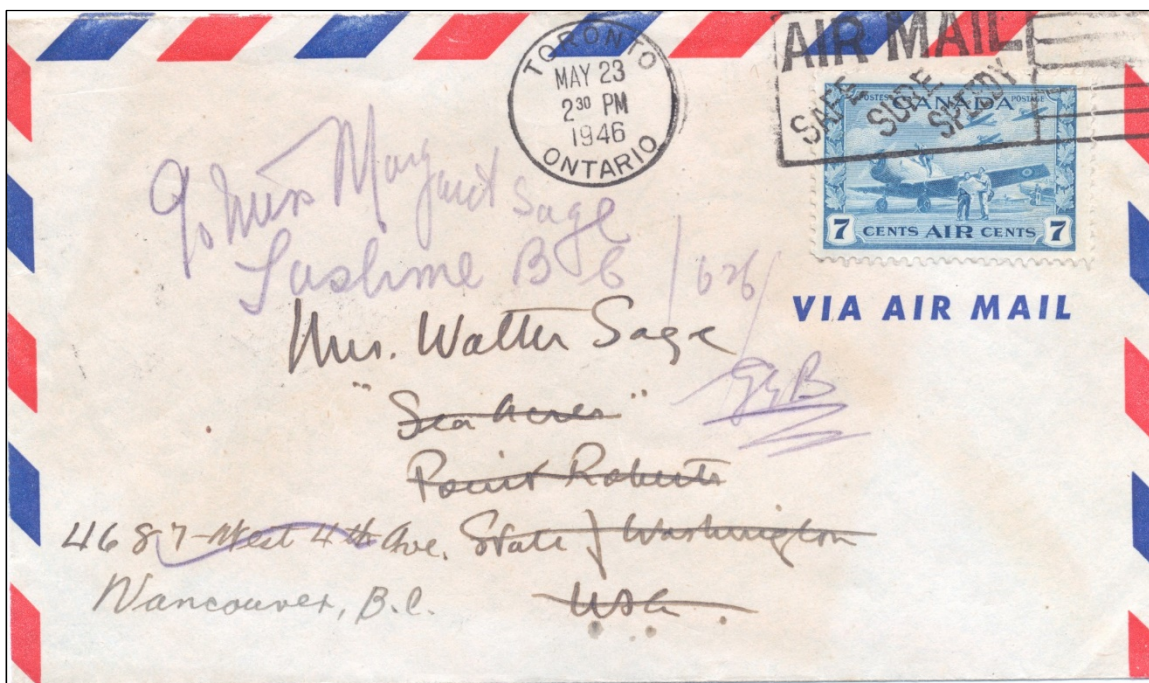 TORONTO
MAY 23
2³⁰ PM
1946
ONTARIO
AIR MAIL
SAFE SURE SPEEDY
POSTES CANADA POSTAGE
7 CENTS AIR CENTS 7
VIA AIR MAIL
c/o Miss Margaret Sage
B C
Mrs. Walter Sage
"Sea Acres"
Point Roberts
State of Washington
USA
4687-West 4th Ave.
Vancouver, B.C.